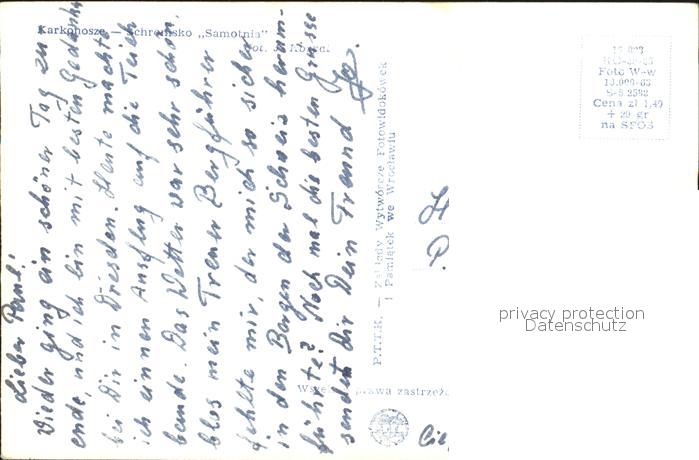 Karkonosze — Schronisko „Samotnia"
Fot. J. Korpal
Lieber Paul!
Wieder ging ein schöner Tag zu
ende, und ich bin mit besten Gedanken
bei Dir in Dresden. Heute machte
ich einnen Ausflug auf die Teich
baude. Das Wetter war sehr schön.
blos mein Treuer Bergführer
fehlte mir, der mich so sicher
in den Bergen der Schweis herum-
führte? Noch mal die besten Grüsse
sendet Dir Dein Freund
P.T.T.K. — Zakłady Wytwórcze Fotowidokówek
i Pamiątek we Wrocławiu
Foto W-w
13.000-63
S-8 2582
Cena zł 1,40
+ 20 gr
na SFOS
privacy protection
Datenschutz
prawa zastrzeżo